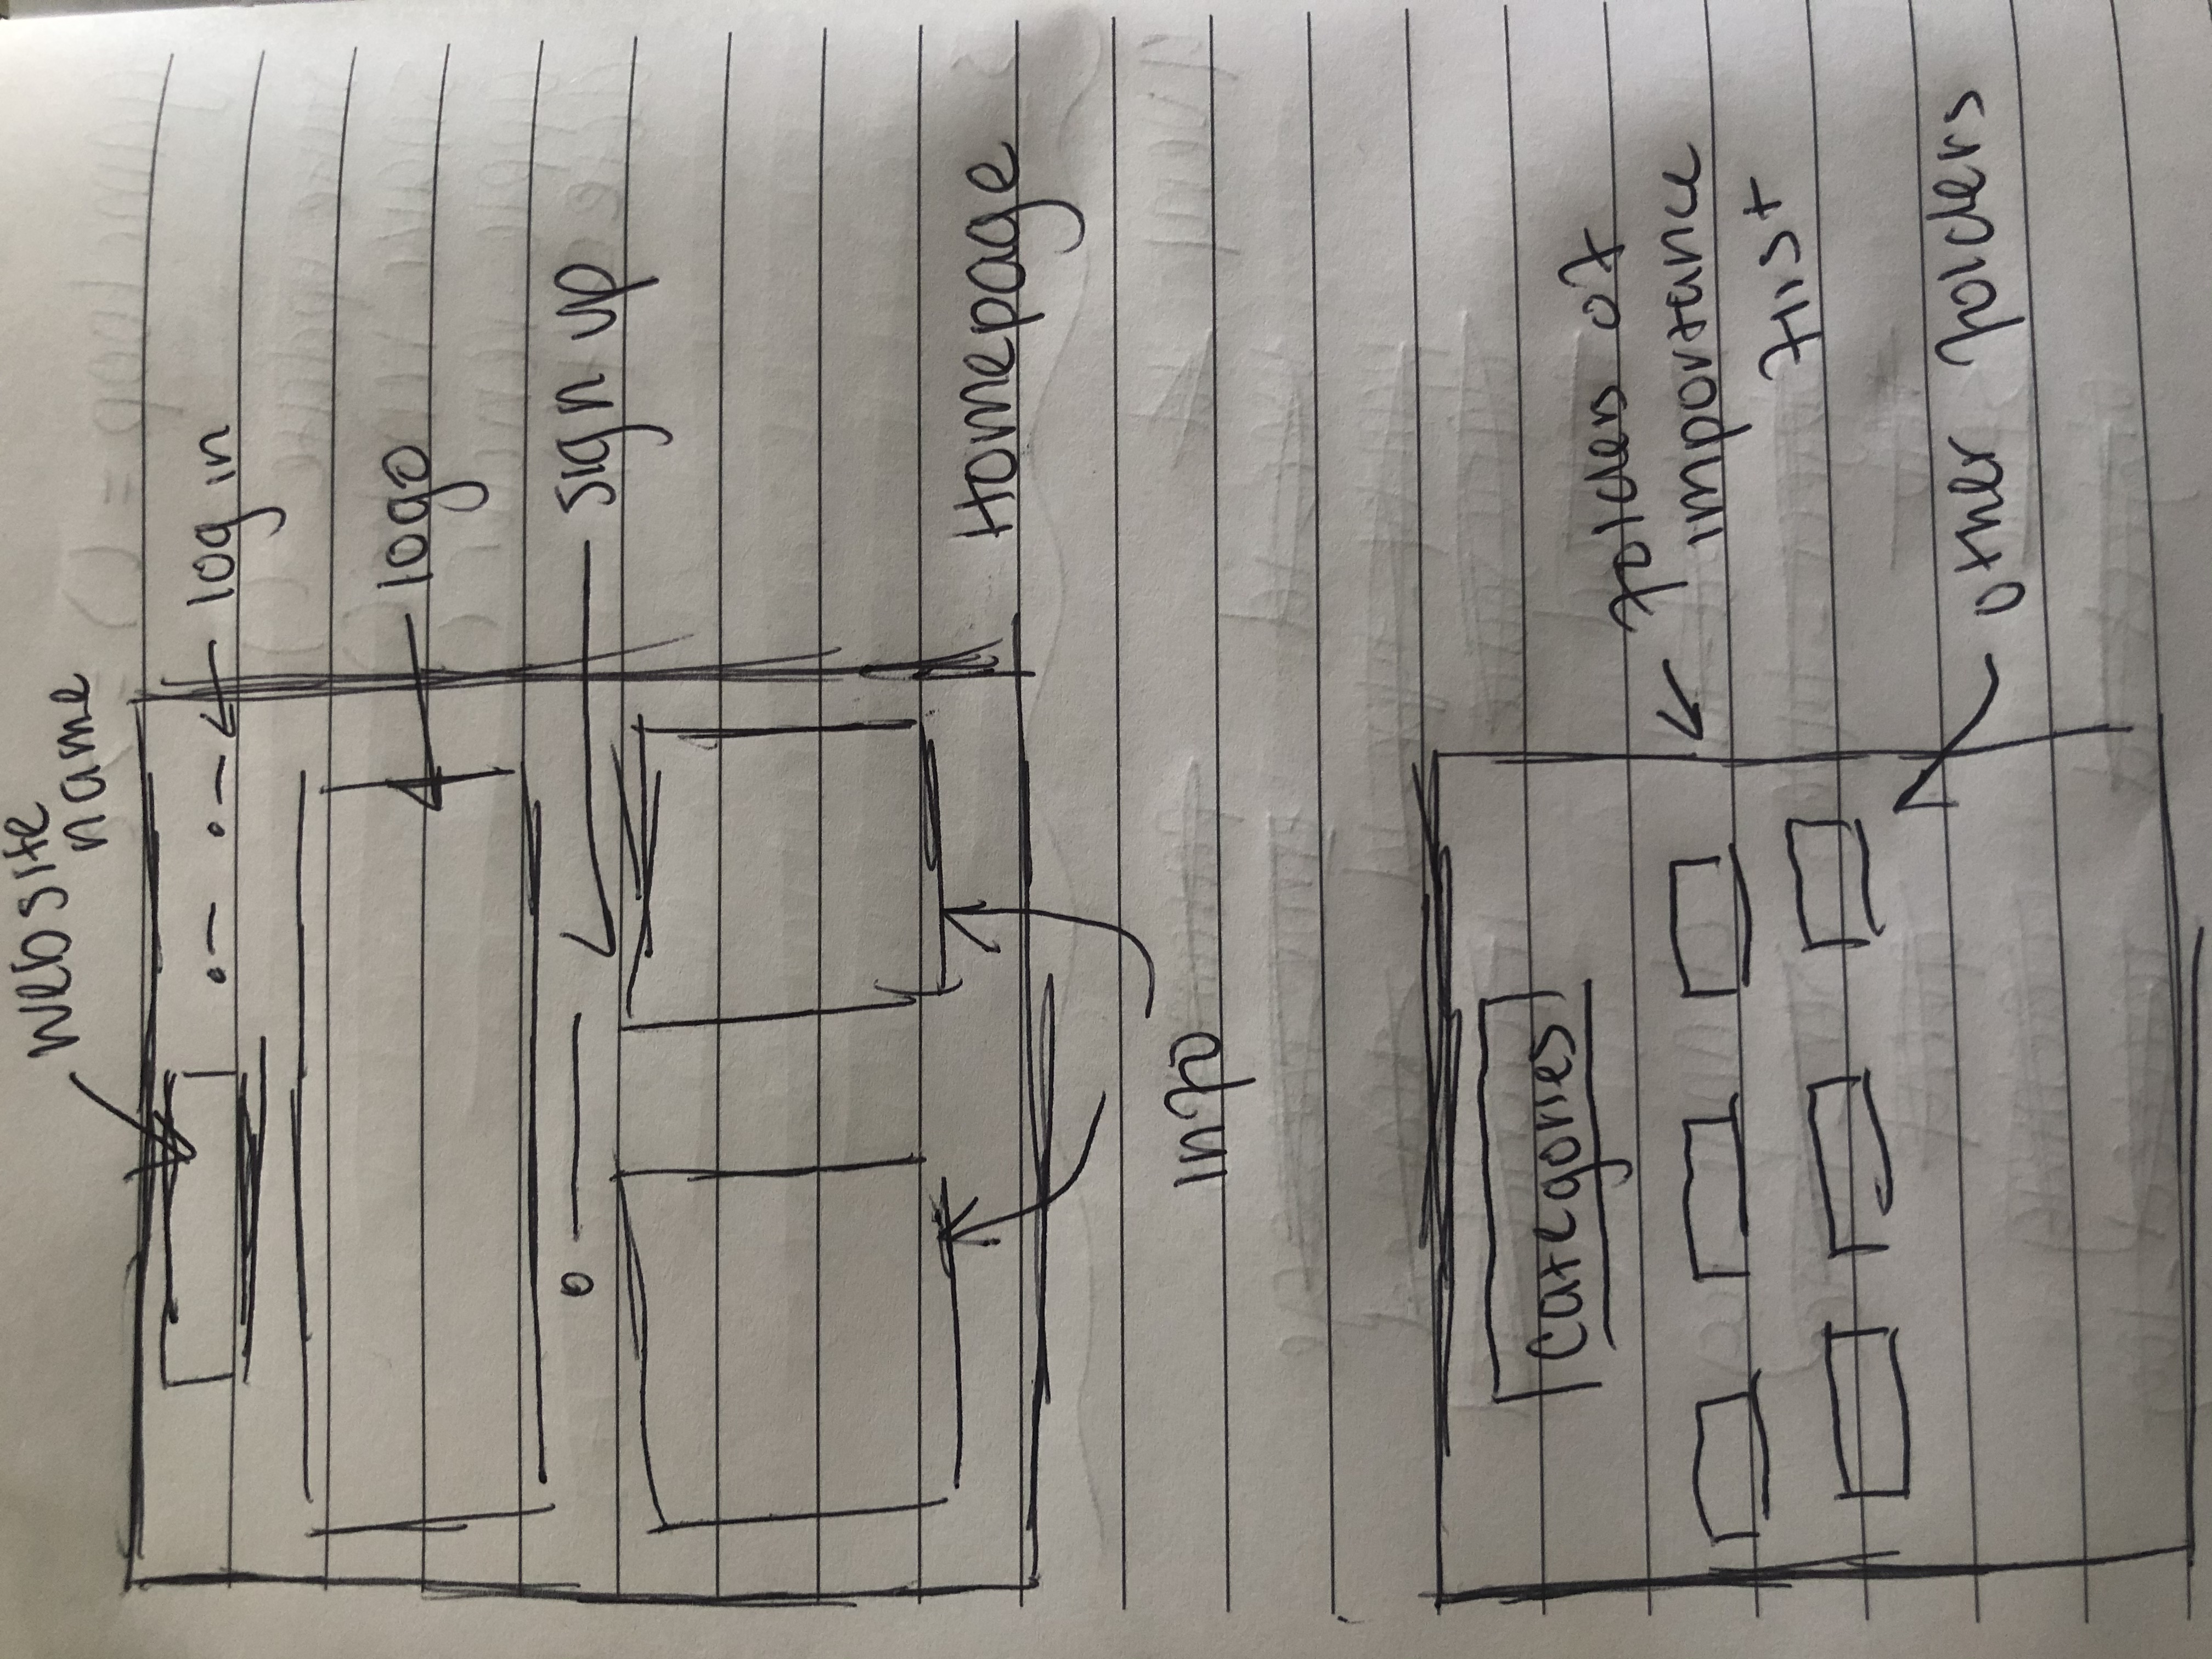 website
name
log in
logo
sign up
Homepage
info
categories
folders of
importance
first
other folders